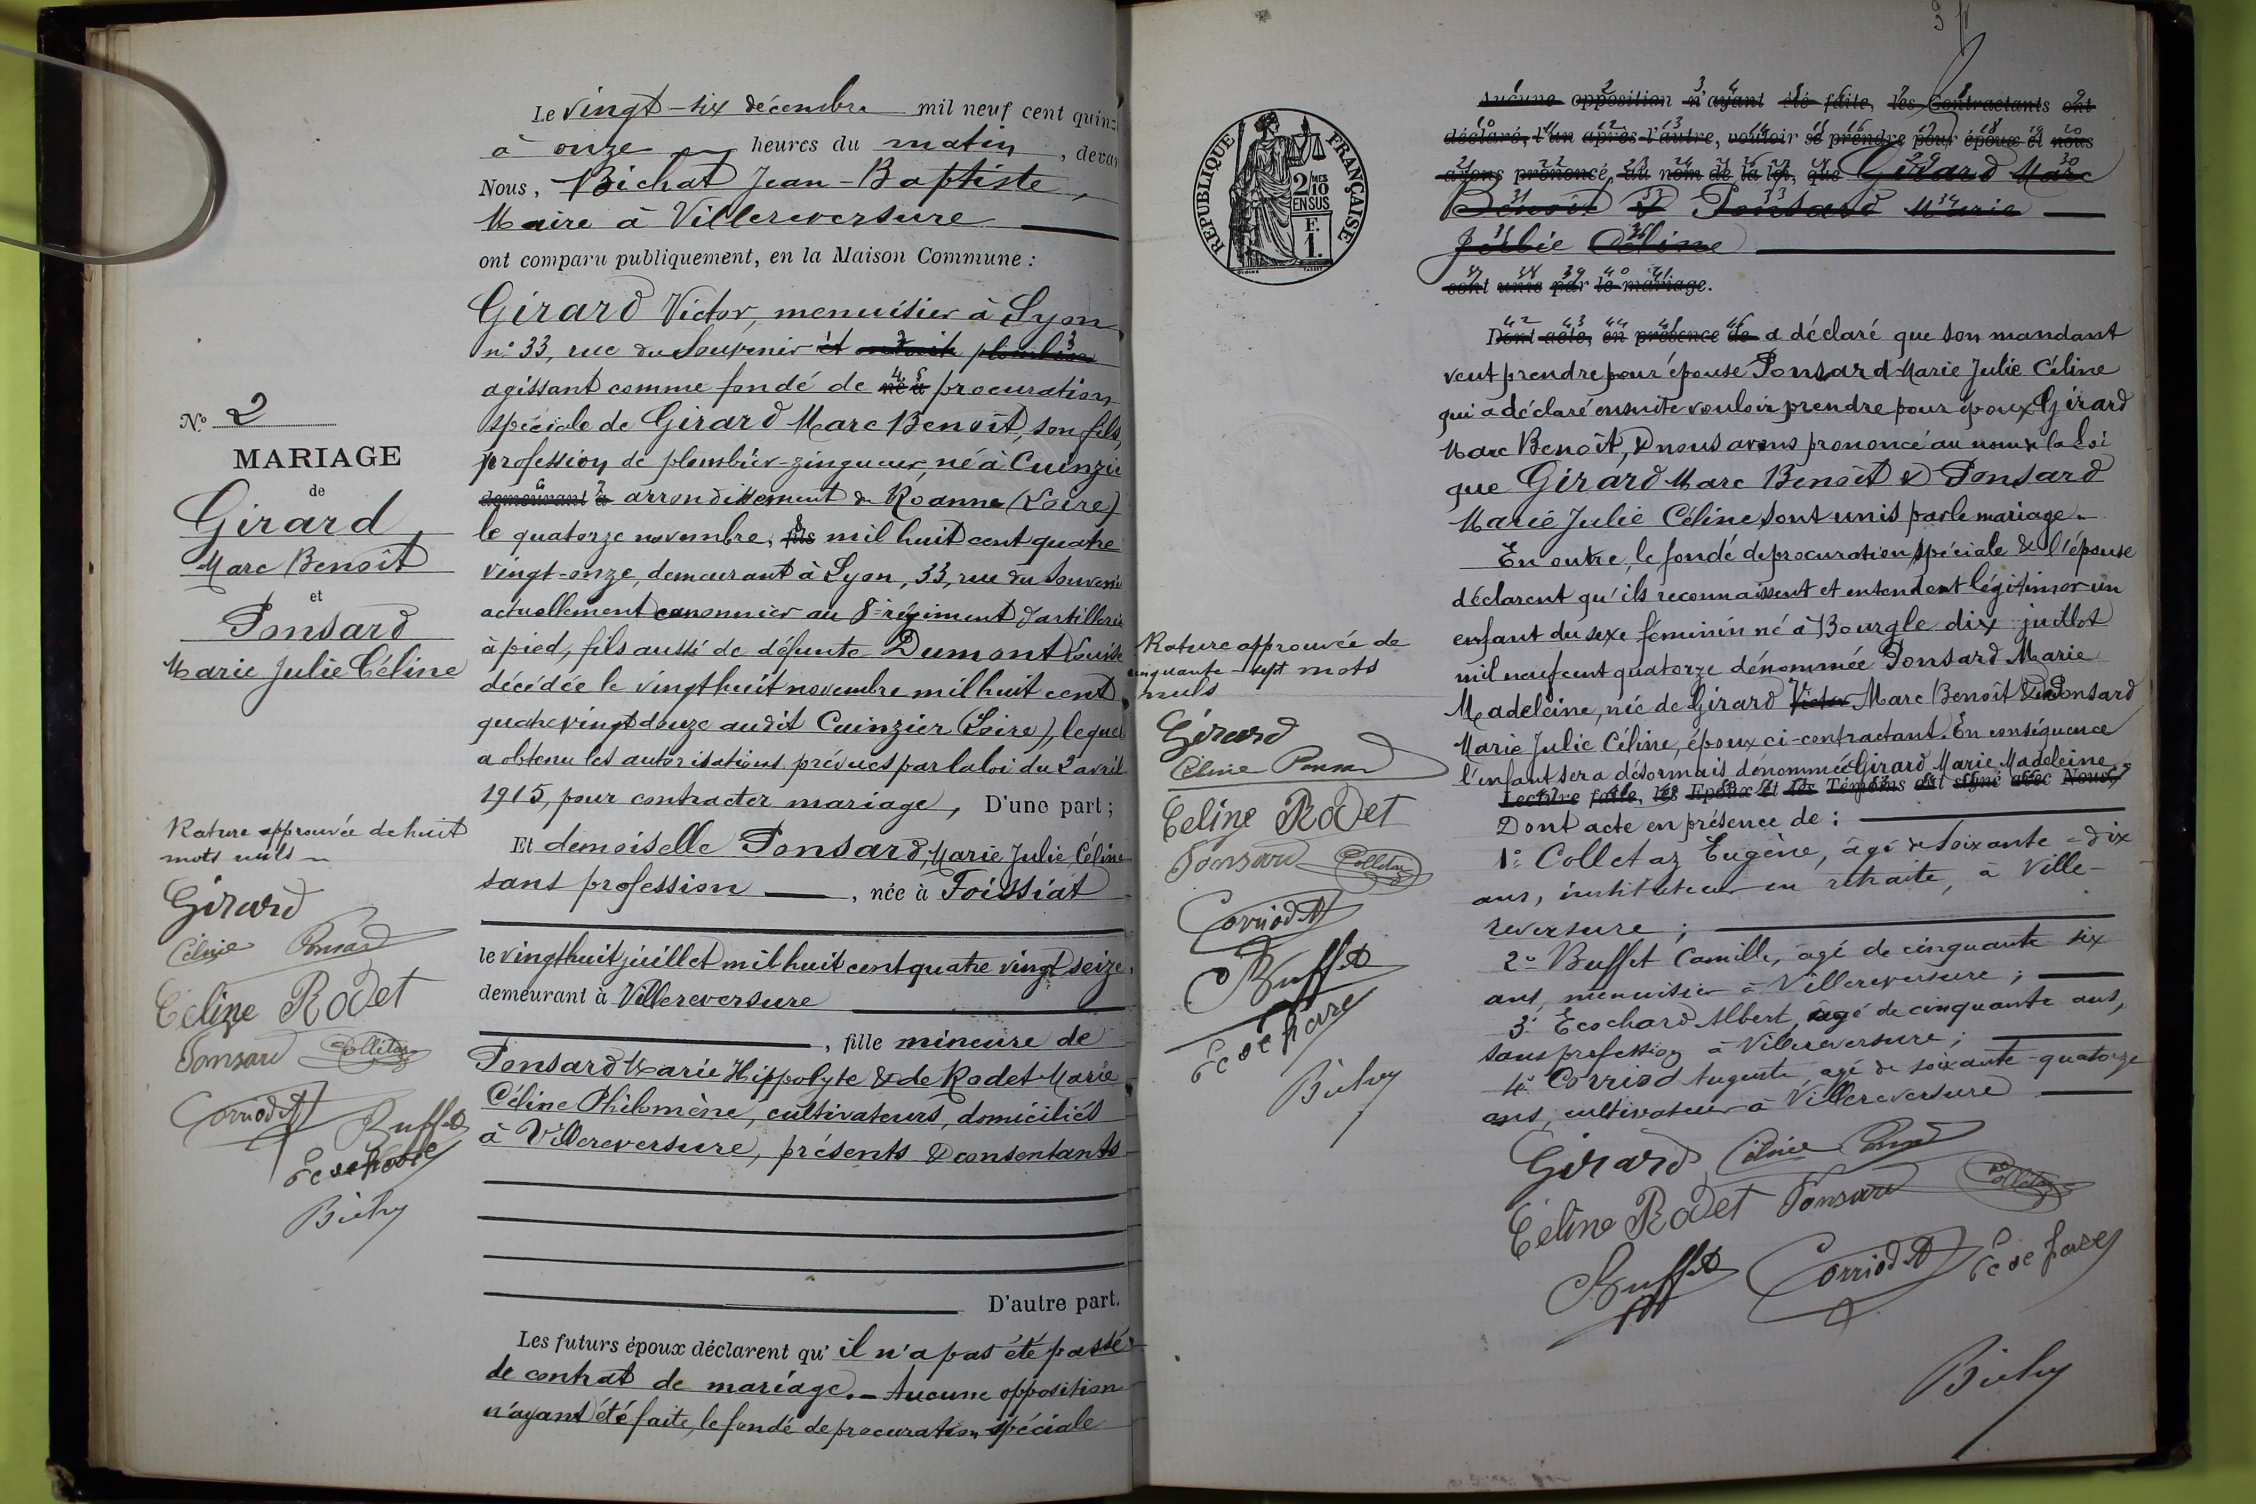 N.º 2
MARIAGE
de
Girard
Marc Benoît
et
Ponsard
Marie Julie Céline
Rature approuvée de huit
mots nuls
Girard
Céline Ponsard
Céline Rodet
Ponsard Colletaz
Corriod A
Buffet
Ecochard
Bichat
Le vingt-six décembre mil neuf cent quinze
à onze heures du matin, devant
Nous, Bichat Jean-Baptiste,
Maire à Villereversure
ont comparu publiquement, en la Maison Commune :
Girard Victor, menuisier à Lyon
n° 33, rue du Souvenir et
agissant comme fondé de né à procuration
spéciale de Girard Marc Benoît, son fils,
profession de plombier-zingueur, né à Cuinzié
demeurant à arrondissement de Roanne (Loire)
le quatorze novembre, fils mil huit cent quatre
vingt-onze, demeurant à Lyon, 33, rue du Souvenir
actuellement canonnier au 8e régiment d'artillerie
à pied, fils aussi de défunte Dumont Louise
décédée le vingt huit novembre mil huit cent
quatre vingt douze audit Cuinzier (Loire), lequel
a obtenu les autorisations prévues par la loi du 2 avril
1915, pour contracter mariage, D'une part ;
Et demoiselle Ponsard, Marie Julie Céline
sans profession, née à Foissiat
le vingt huit juillet mil huit cent quatre vingt seize,
demeurant à Villereversure
, fille mineure de
Ponsard Marie Hippolyte & de Rodet Marie
Céline Philomène, cultivateurs, domiciliés
à Villereversure, présents & consentants
D'autre part.
Les futurs époux déclarent qu' il n'a pas été passé
de contrat de mariage. – Aucune opposition
n'ayant été faite, le fondé de procuration spéciale
RÉPUBLIQUE FRANÇAISE
2/10 MES
EN SUS
F.
1.
Rature approuvée de
cinquante-sept mots
nuls
Girard
Céline Ponsard
Céline Rodet
Ponsard Colletaz
Corriod A
Buffet
Ecochard
Bichat
Aucune opposition n'ayant été faite, les Contractants ont
déclaré, l'un après l'autre, vouloir se prendre pour époux et nous
avons prononcé, au nom de la loi, que Girard Marc
Benoît & Ponsard Marie
Julie Céline
sont unis par le mariage.
Dont acte, en présence de a déclaré que son mandant
veut prendre pour épouse Ponsard Marie Julie Céline
qui a déclaré ensuite vouloir prendre pour époux Girard
Marc Benoît, & nous avons prononcé au nom de la Loi
que Girard Marc Benoît & Ponsard
Marie Julie Céline sont unis par le mariage.
En outre, le fondé de procuration spéciale & l'épouse
déclarent qu'ils reconnaissent et entendent légitimer un
enfant du sexe féminin né à Bourg le dix juillet
mil neuf cent quatorze dénommée Ponsard Marie
Madeleine, née de Girard Victor Marc Benoît & de Ponsard
Marie Julie Céline, époux ci-contractant. En conséquence
l'enfant sera désormais dénommée Girard Marie Madeleine
Lecture faite, les Époux et les Témoins ont signé avec Nous
Dont acte en présence de :
1° Colletaz Eugène, âgé de soixante-dix
ans, instituteur en retraite, à Ville-
reversure ;
2° Buffet Camille, âgé de cinquante six
ans, menuisier à Villereversure ;
3° Ecochard Albert, âgé de cinquante ans,
sans profession à Villereversure ;
4° Corriod Auguste âgé de soixante-quatorze
ans, cultivateur à Villereversure
Girard Céline Ponsard
Céline Rodet Ponsard Colletaz
Buffet Corriod A Ecochard
Bichat